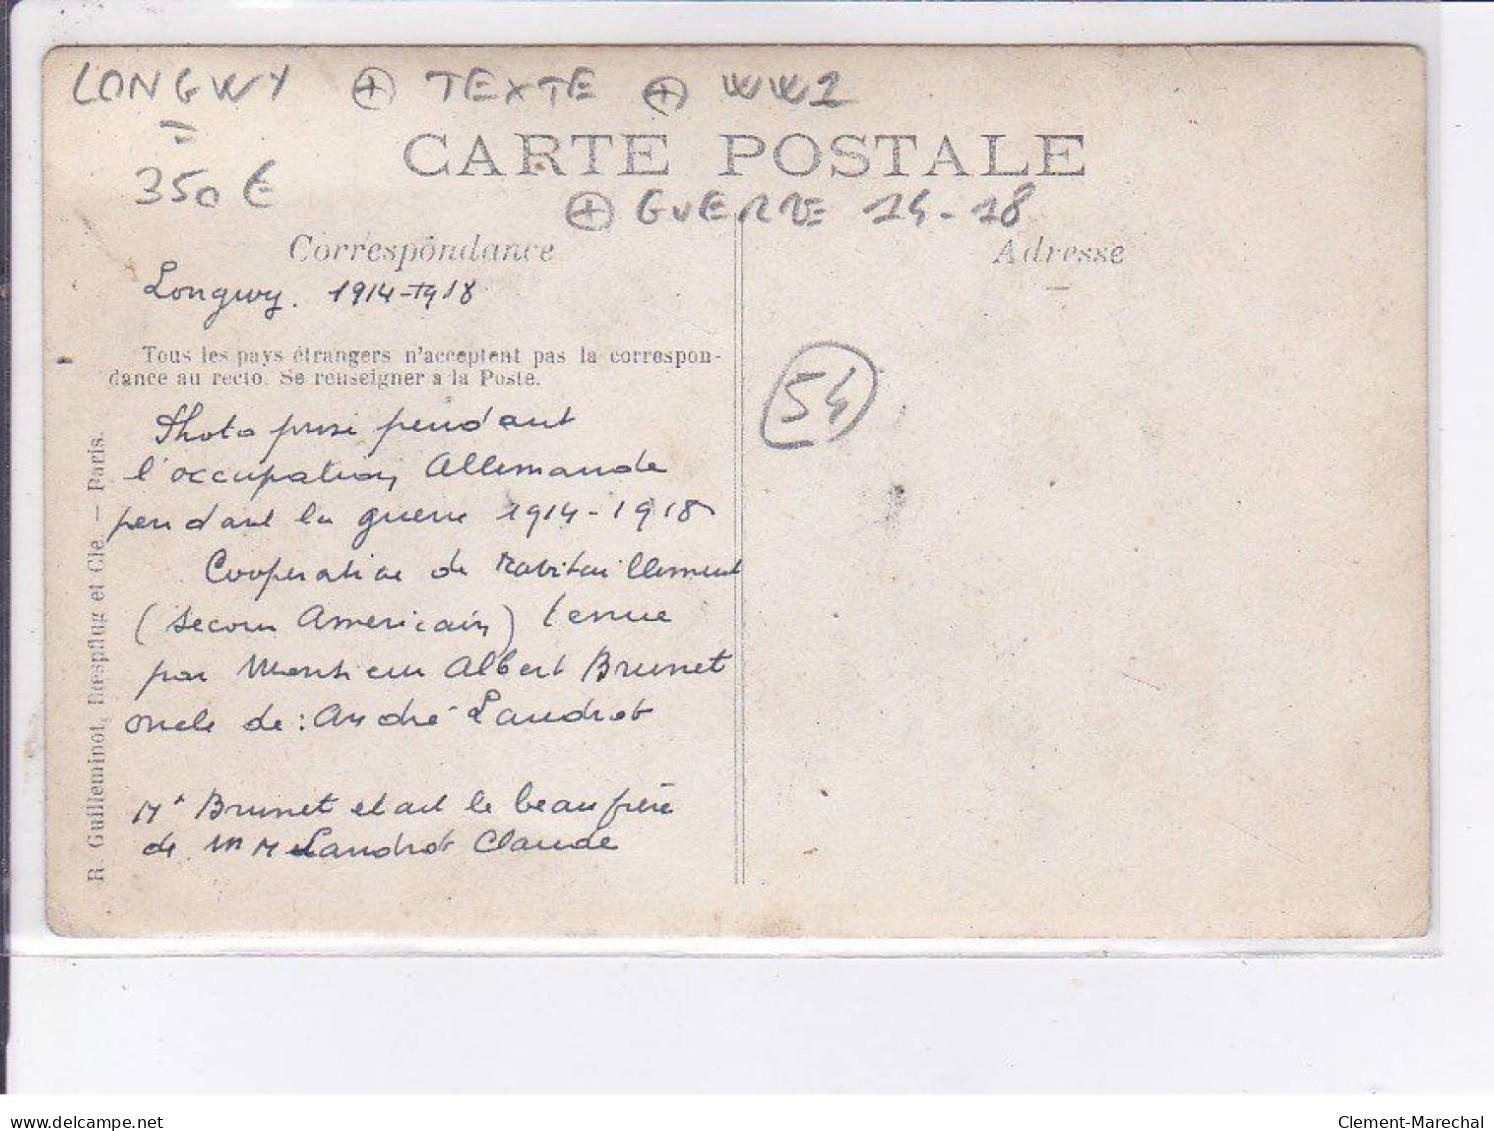 LONGWY + TEXTE + WW1
CARTE POSTALE
350 €
+ GUERRE 14-18
Correspondance
Adresse
Longwy. 1914-1918
Tous les pays étrangers n'acceptent pas la correspon-
dance au recto. Se renseigner à la Poste.
54
Photo prise pendant
l'occupation Allemande
pendant la guerre 1914-1918
Cooperative de ravitaillement
(secour Americain) tenue
par Monsieur Albert Brunet
oncle de: André Landrot
Mr Brunet etait le beau frère
de Landrot Claude
R. Guilleminot, Bœspflug et Cie. — Paris.
delcampe.net
Clement-Marechal